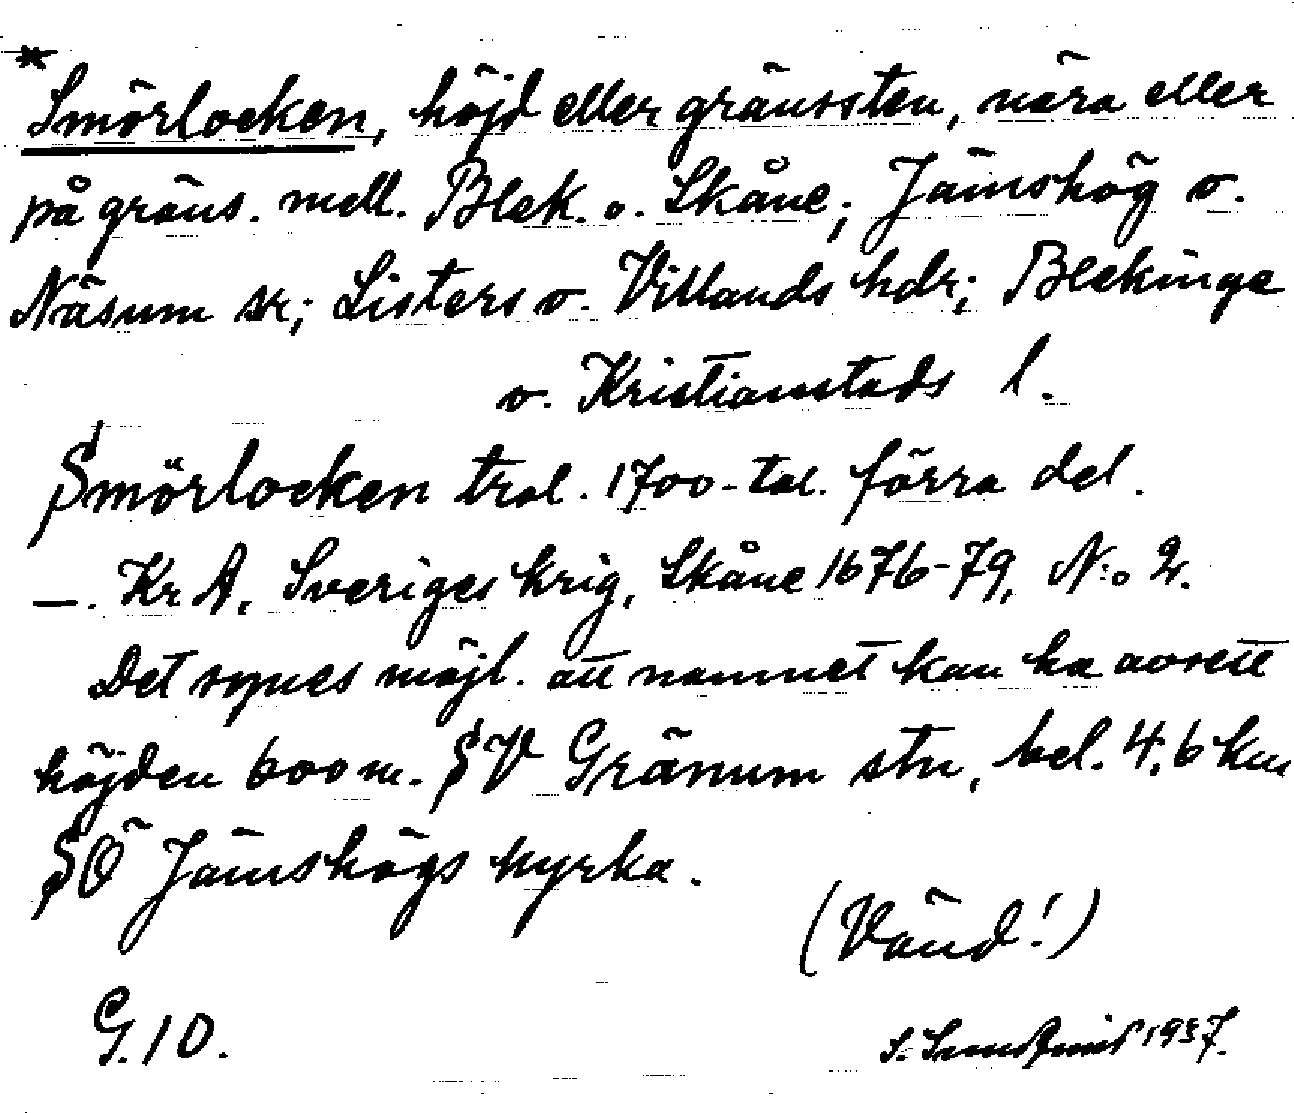 * Smörlocken, höjd eller gränssten, nära eller
på gräns. mell. Blek. o. Skåne; Jämshög o.
Näsum sr; Listers o. Villands hdr; Blekinge
o. Kristianstads l.
Smörlocken trol. 1700-tal. förra del.
—. KrA, Sveriges krig, Skåne 1676-79, N:o 2.
Det synes möjl. att namnet kan ha avsett
höjden 600 m. SV Gränum stn, bel. 4,6 km
SÖ Jämshögs kyrka.
(Vänd!)
G. 10.
S. 1937.